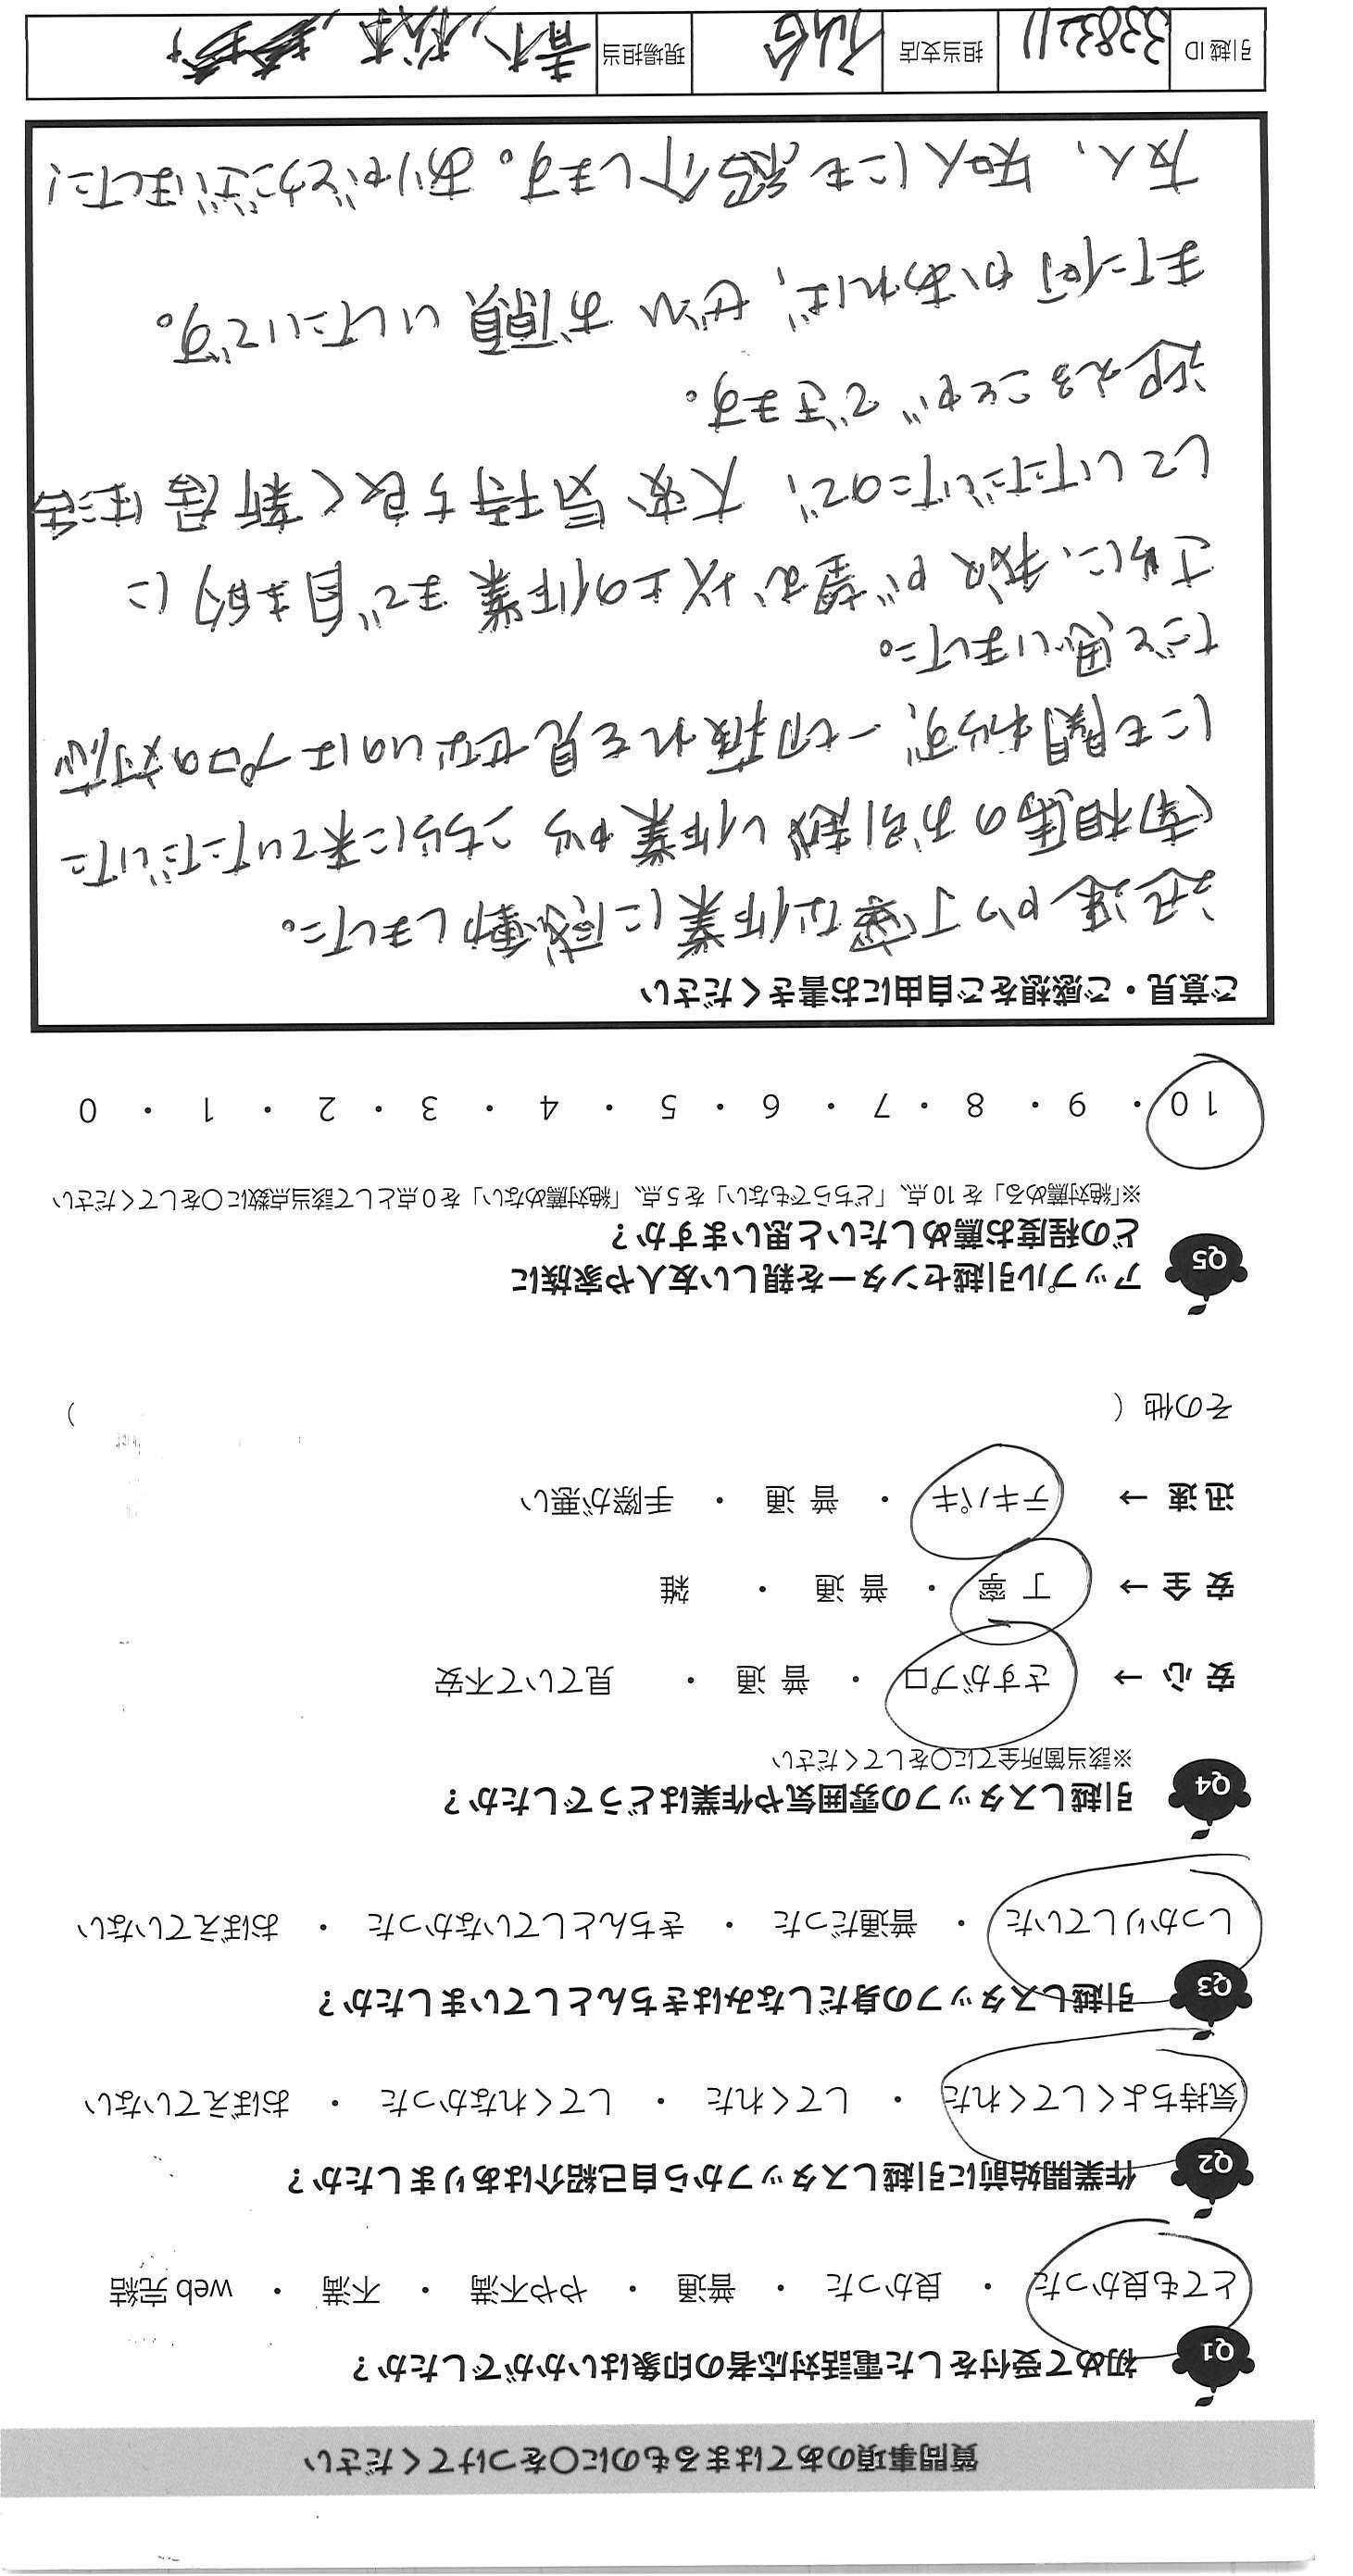 質問事項のあてはまるものに〇をつけてください
Q1 初めて受付をした電話対応者の印象はいかがでしたか？
とても良かった ・ 良かった ・ 普通 ・ やや不満 ・ 不満 ・ web 完結
Q2 作業開始前に引越しスタッフから自己紹介はありましたか？
気持ちよくしてくれた ・ してくれた ・ してくれなかった ・ おぼえていない
Q3 引越しスタッフの身だしなみはきちんとしていましたか？
しっかりしていた ・ 普通だった ・ きちんとしていなかった ・ おぼえていない
Q4 引越しスタッフの雰囲気や作業はどうでしたか？
※該当箇所全てに〇をしてください
安 心 → さすがプロ ・ 普 通 ・ 見ていて不安
安 全 → 丁 寧 ・ 普 通 ・ 雑
迅 速 → テキパキ ・ 普 通 ・ 手際が悪い
その他（ ）
Q5 アップル引越センターを親しい友人や家族に
どの程度お薦めしたいと思いますか？
※「絶対薦める」を 10 点、「どちらでもない」を 5 点、「絶対薦めない」を 0 点として該当点数に〇をしてください
10 ・ 9 ・ 8 ・ 7 ・ 6 ・ 5 ・ 4 ・ 3 ・ 2 ・ 1 ・ 0
ご意見・ご感想をご自由にお書きください
迅速かつ丁寧な作業に感動しました。
(南相馬のお引越し作業から こちらに来ていただいた
にも関わらず、一切疲れを見せないのはプロの対応
だと思いました。
さらに、我々が望む以上の作業まで自主的に
していただいたので、大変気持ち良く新居生活
迎えることができます。
また何かあれば、ぜひお願いしたいです。
友人、知人にも紹介します。ありがとうございました!
引越 ID 3383211 担当支店 仙台 現場担当 青木, 松本,